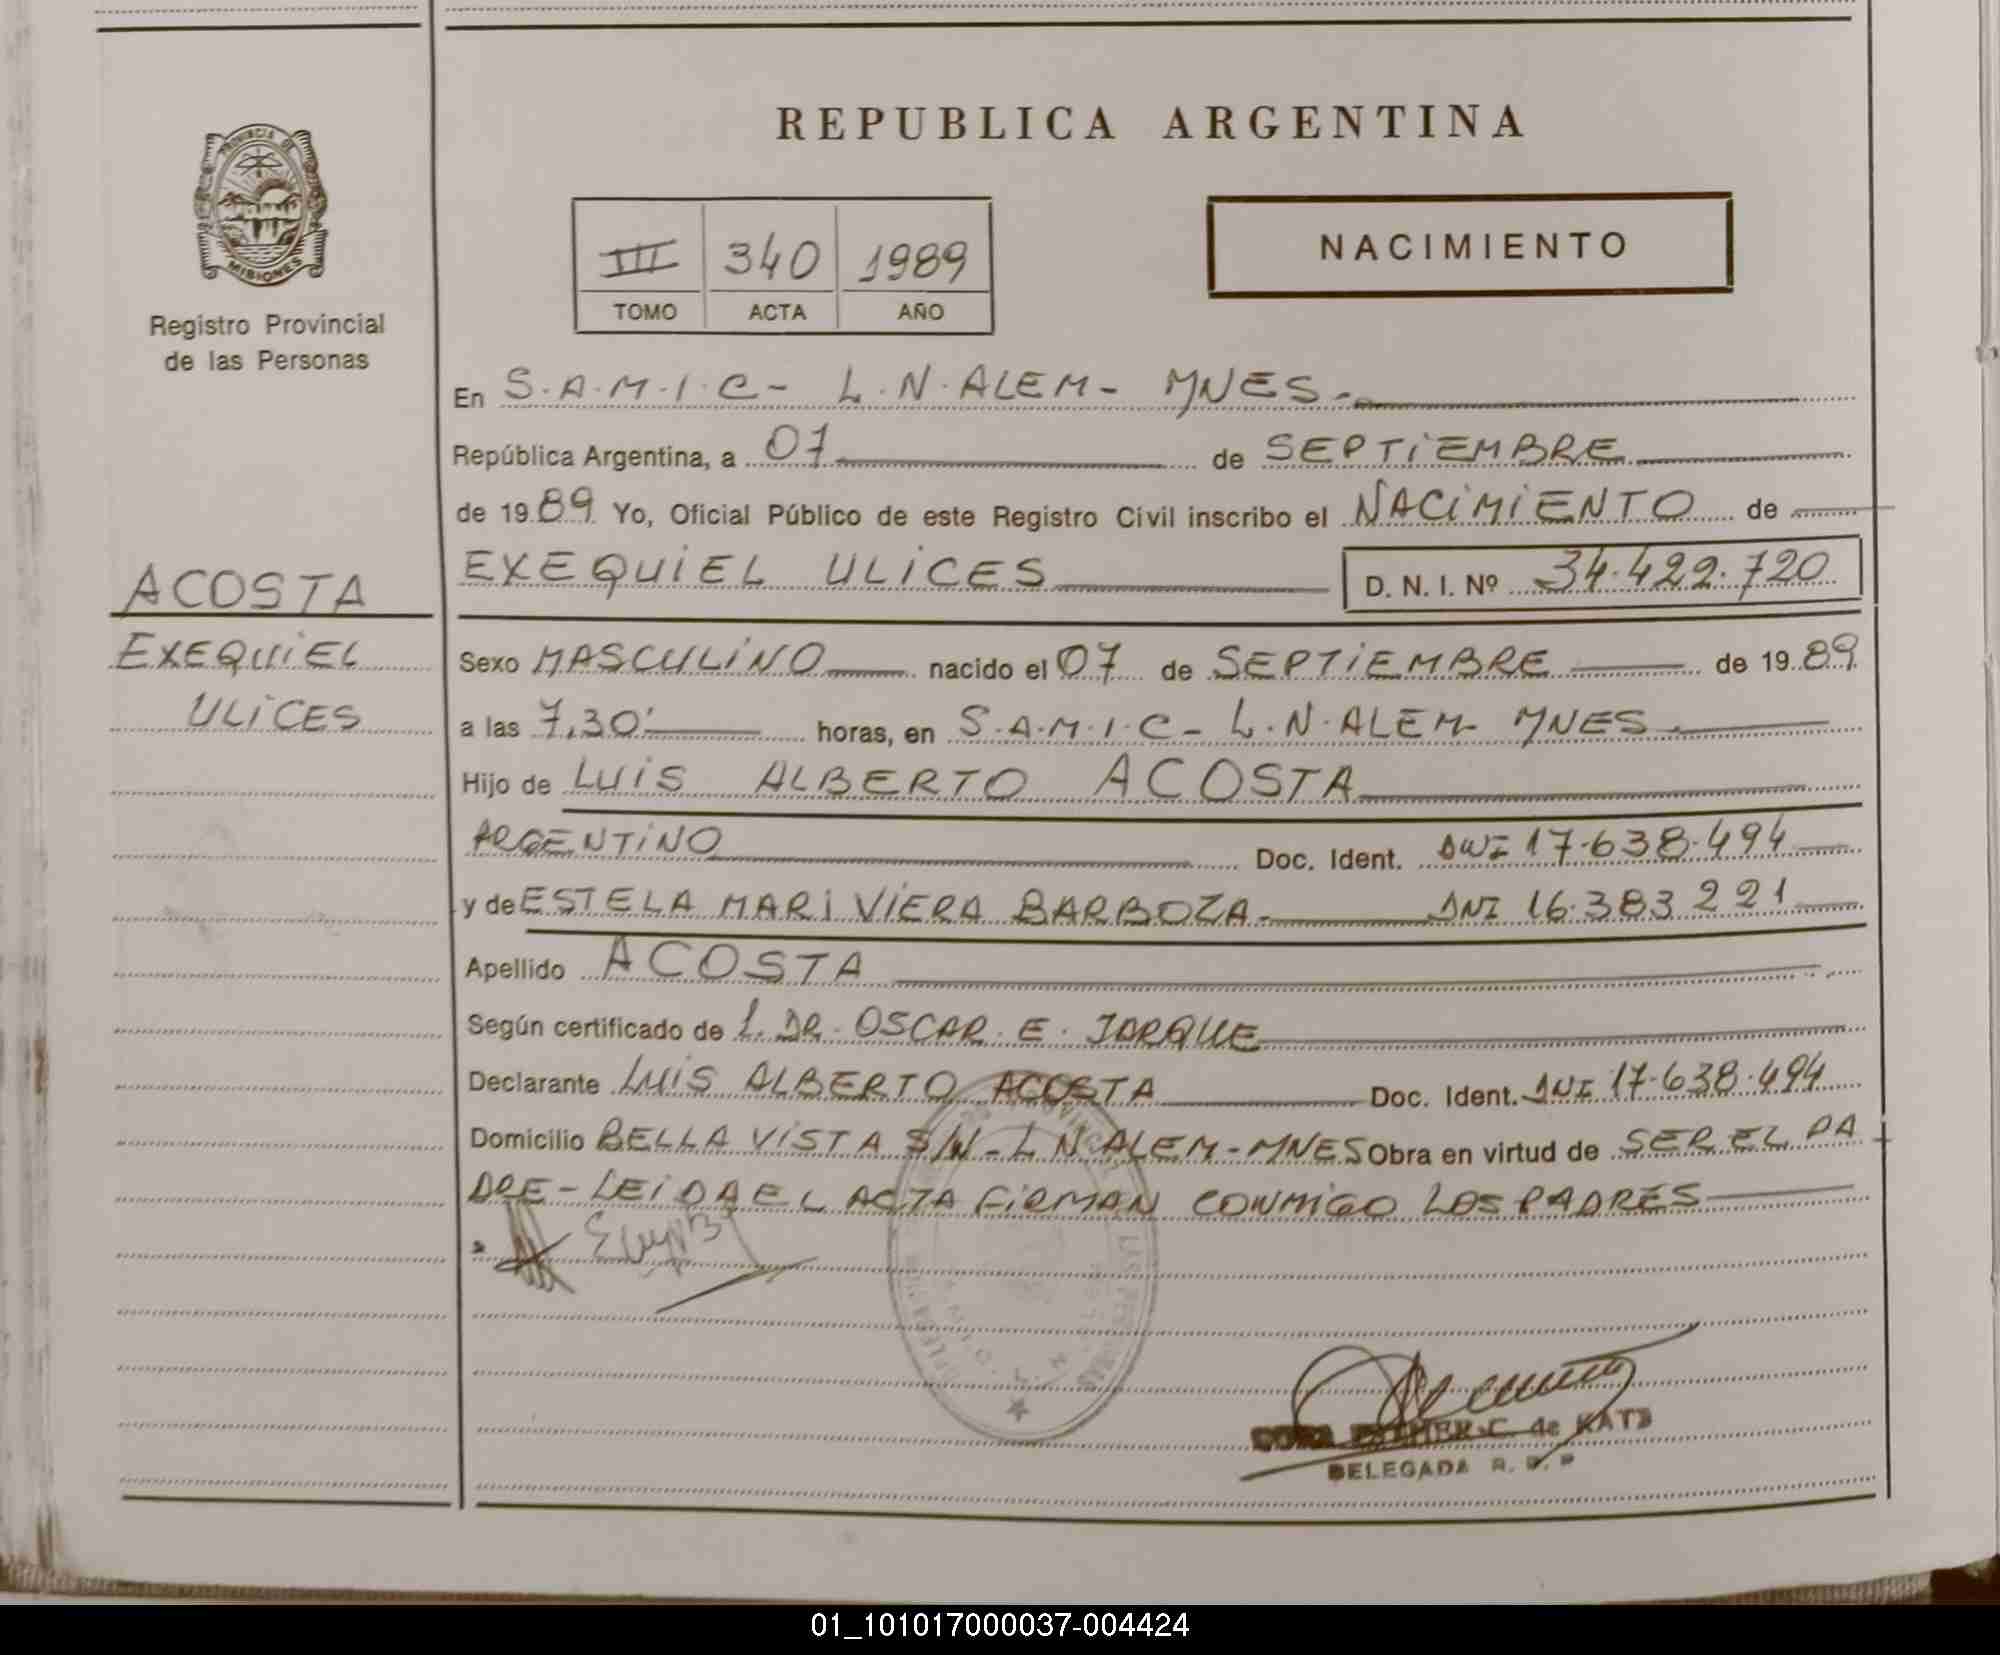 PROVINCIA DE
MISIONES
Registro Provincial
de las Personas
ACOSTA
EXEQUIEL
ULICES
REPUBLICA ARGENTINA
III 340 1989
TOMO ACTA AÑO
NACIMIENTO
En S.A.M.I.C- L.N.ALEM- MNES.-
República Argentina, a 07 de SEPTIEMBRE
de 1989 Yo, Oficial Público de este Registro Civil inscribo el NACIMIENTO de
EXEQUIEL ULICES D. N. I. Nº 34.422.720
Sexo MASCULINO nacido el 07 de SEPTIEMBRE de 1989
a las 7,30' horas, en S.A.M.I.C- L.N.ALEM- MNES
Hijo de LUIS ALBERTO ACOSTA
ARGENTINO Doc. Ident. DNI 17.638.494
y de ESTELA MARI VIERA BARBOZA- DNI 16.383 221
Apellido ACOSTA
Según certificado de L. DR. OSCAR. E. JARQUE
Declarante LUIS ALBERTO ACOSTA Doc. Ident. DNI 17.638.494
Domicilio BELLA VISTA S/N- L N ALEM-MNES Obra en virtud de SER EL PA
DRE- LEIDA EL ACTA FIRMAN CONMIGO LOS PADRES
C. de KATZ
DELEGADA R. P. P
01_101017000037-004424